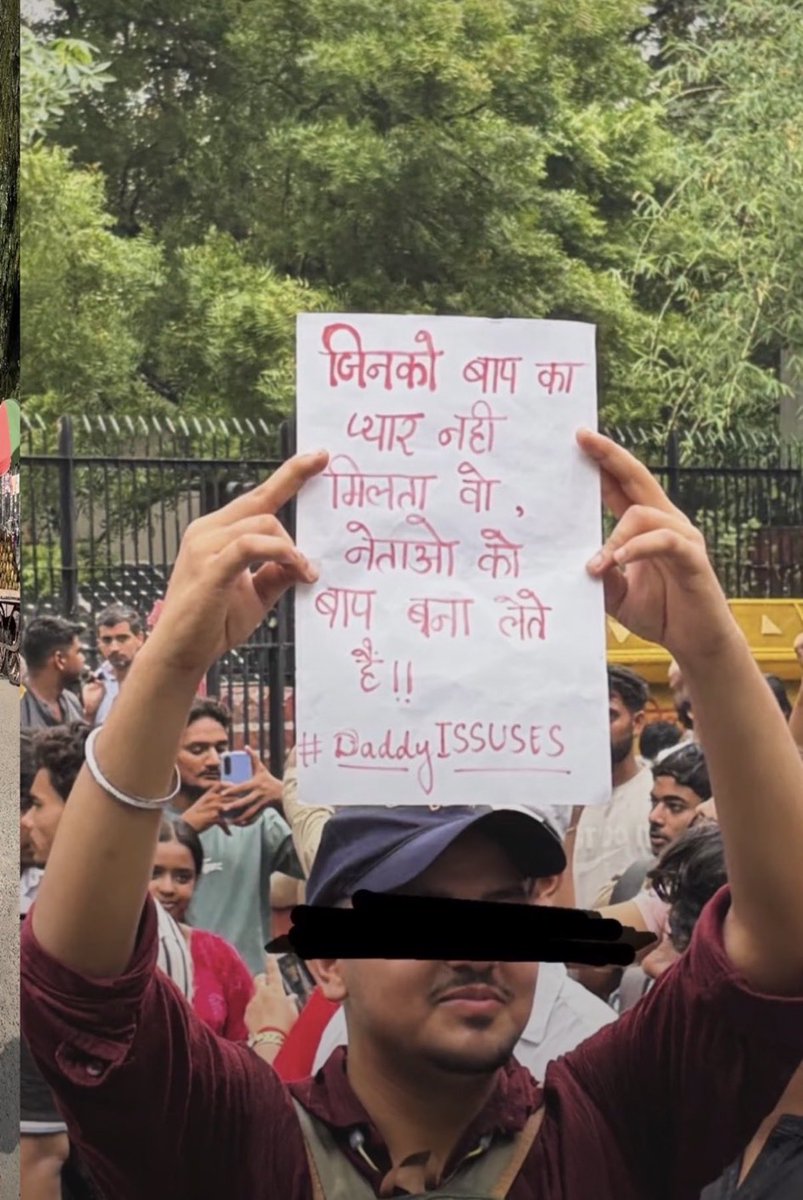 जिनको बाप का
प्यार नही
मिलता वो ,
नेताओ को
बाप बना लेते
हैं !!
# Daddy ISSUSES